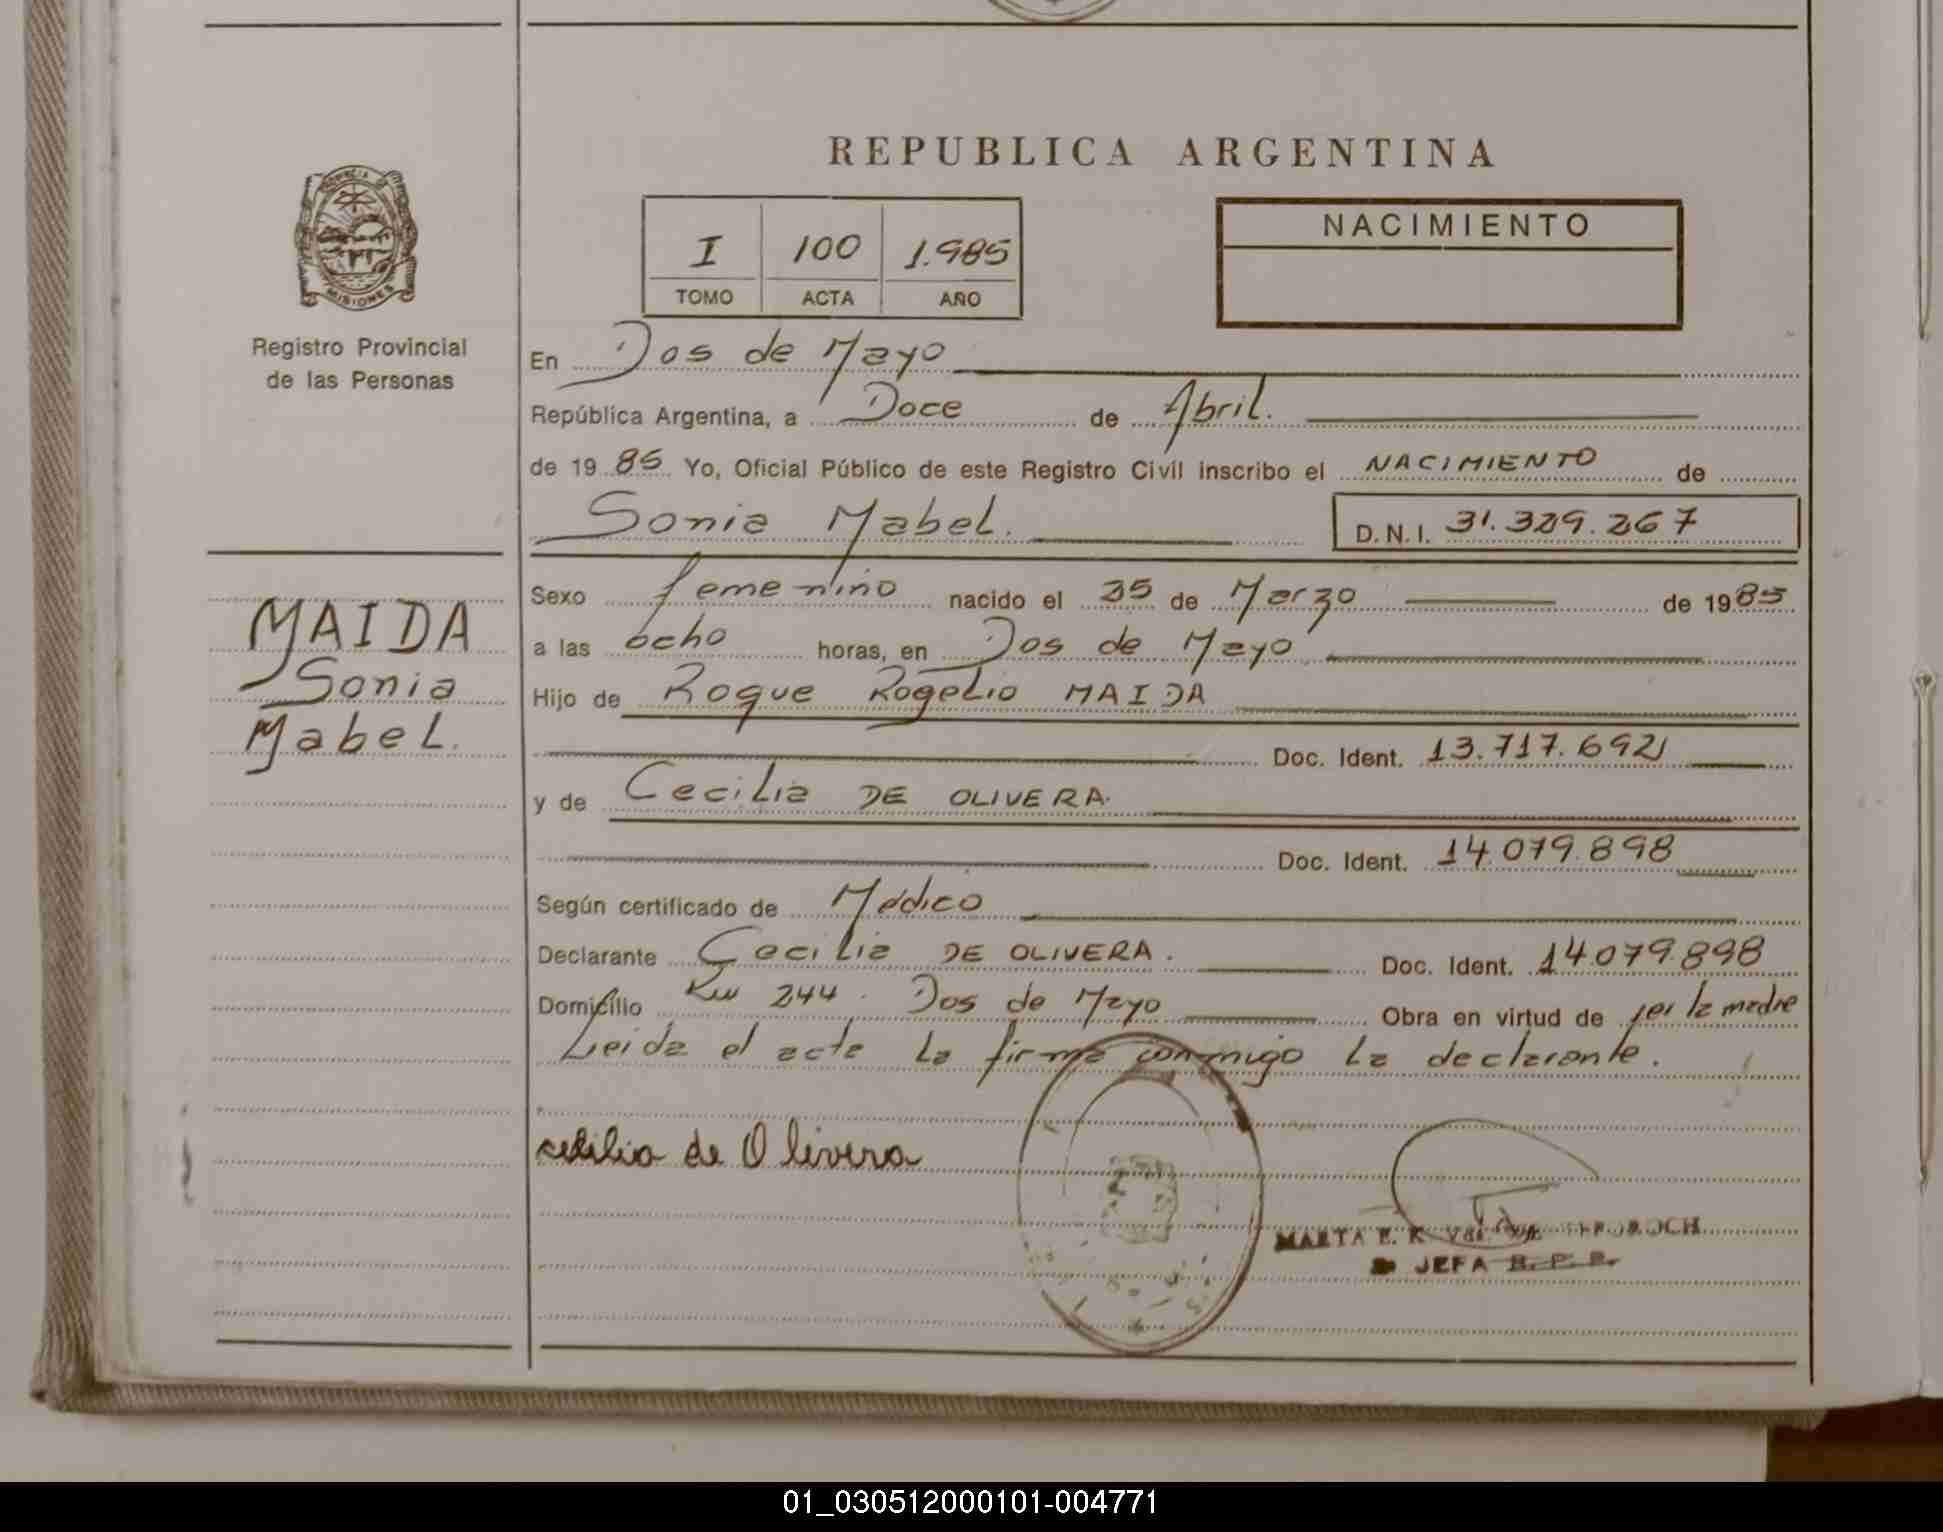 REPUBLICA ARGENTINA
I 100 1.985
TOMO ACTA AÑO
NACIMIENTO
MISIONES
Registro Provincial
de las Personas
En Dos de Mayo
República Argentina, a Doce de Abril.
de 19 85 Yo, Oficial Público de este Registro Civil inscribo el NACIMIENTO de
Sonia Mabel. D.N.I. 31.329.267
MAIDA
Sonia
Mabel.
Sexo femenino nacido el 25 de Marzo de 1985
a las ocho horas, en Dos de Mayo
Hijo de Roque Rogelio MAIDA
Doc. Ident. 13.717.692
y de Cecilia DE OLIVERA.
Doc. Ident. 14.079.898
Según certificado de Médico
Declarante Cecilia DE OLIVERA. Doc. Ident. 14.079.898
Domicilio Km 244. Dos de Mayo Obra en virtud de ser la madre
Leida el acta la firma conmigo la declarante.
cecilia de Olivera
MARTA E. K.
JEFA R. P. P.
01_030512000101-004771